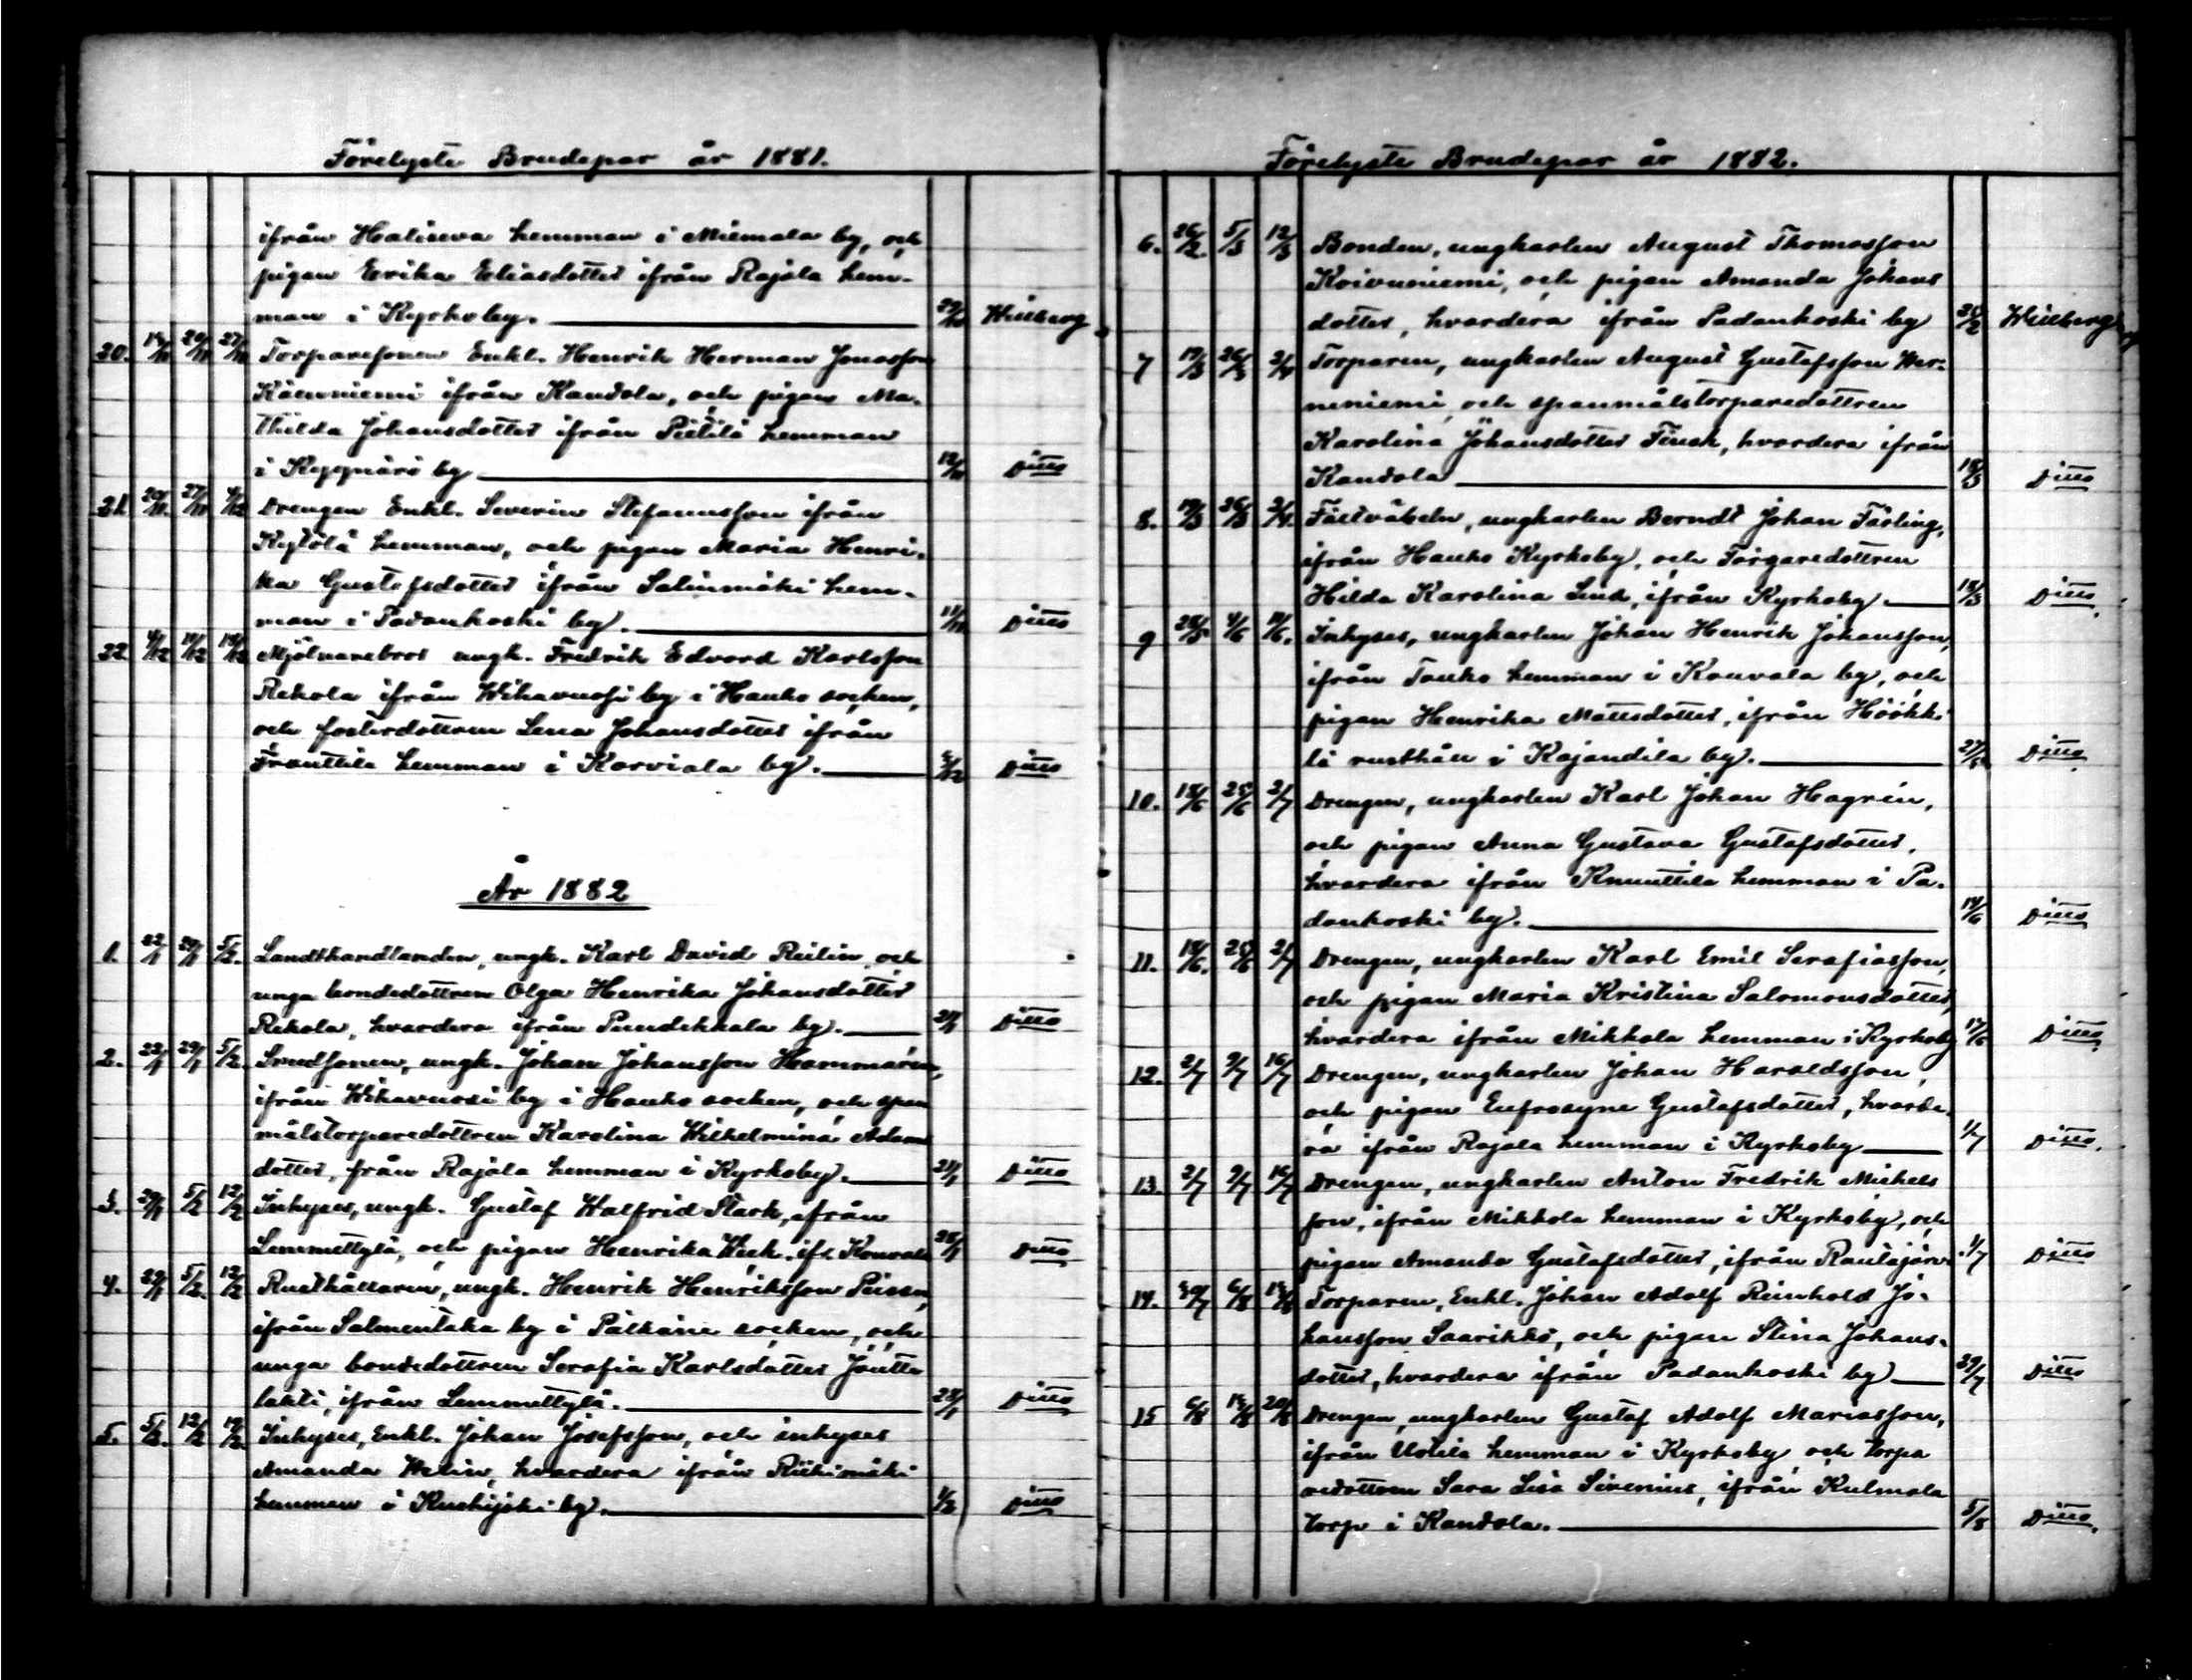 Förelyste Brudepar år 1881.
ifrån Haliseva hemman i Miemala by, och
pigan Erika Eliasdotter ifrån Rajala hem-
man i Kyrkoby. 29/10 Willberg
20. 13/11 20/11 27/11 Torparesonen Enkl. Henrik Herman Jonasson
Käenniemi ifrån Kandola, och pigan Ma-
thilda Johansdotter ifrån Pietilä hemman
i Kyynärö by 12/11 Ditto
21. 20/11 27/11 4/12 Drengen Enkl. Severin Stefanusson ifrån
Kytölä hemman, och pigan Maria Henri-
ka Gustafsdotter ifrån Salinmäki hem-
man i Padankoski by. 19/11 Ditto
22 4/12 11/12 18/12 Mjölnarebror ungk. Fredrik Edvard Karlsson
Rekola ifrån Wihavuosi by i Hauho socken,
och fosterdottren Lena Johansdotter ifrån
Franttila hemman i Korviala by. 3/12 Ditto
År 1882
1. 22/1 29/1 5/2. Landthandlanden, ungk. Karl David Reilin, och
unga bondedottren Olga Henrika Johansdotter
Rekola, hvardera ifrån Pundikkala by. 21/1 Ditto
2. 22/1 29/1 5/2. Smedsonen, ungk. Johan Johansson Hammarén,
ifrån Wihavuosi by i Hauho socken, och span
målstorparedottren Karolina Wilhelmina Adams
dotter, från Rajala hemman i Kyrkoby. 21/1 Ditto
3. 29/1 5/2 12/2 Inhyses, ungk. Gustaf Walfrid Stark, ifrån
Lemmettylä, och pigan Henrika Wick, ifr. Kouvala 28/1 Ditto
4. 29/1 5/2. 12/2 Rusthållaren, ungk. Henrik Henriksson
ifrån Salmentaka by i Pälkäne socken, och
unga bondedottren Serafia Karlsdotter Joutte
lahti, ifrån Lemmettylä. 28/1 Ditto
5. 5/2. 12/2 19/2. Inhyses, Enkl. Johan Josefsson, och inhyses
Amanda Welin, hvardera ifrån Riihimäki
hemman i by. 4/2 Ditto
Förelyste Brudepar år 1882.
6. 26/2. 5/3 12/3 Bonden, ungkarlen August Thomasson
Koivuniemi, och pigan Amanda Johans
dotter, hvardera ifrån Padankoski by 25/2 Willberg
7 19/3 26/3 2/4 Torparen, ungkarlen August Gustafsson Wer-
neniemi, och spanmålstorparedottren
Karolina Johansdotter Finsk, hvardera ifrån
Kandola 18/3 Ditto
8. 19/3 26/3 2/4. Fältväbeln, ungkarlen Berndt Johan Färling,
ifrån Hauho Kyrkoby, och Torparedottren
Hilda Karolina Lind, ifrån Kyrkoby. 18/3 Ditto.
9 28/5 4/6 11/6. Inhyses, ungkarlen Johan Henrik Johansson,
ifrån Tauho hemman i Kouvala by, och
pigan Henrika Mattsdotter, ifrån Höökki
lä rusthåll i Kajandila by. 27/5 Ditto.
10. 18/6 25/6 2/7 Drengen, ungkarlen Karl Johan Hagrén,
och pigan Anna Gustava Gustafsdotter,
hvardera ifrån Knuuttila hemman i Pa-
dankoski by. 17/6 Ditto
11. 18/6. 25/6 2/7 Drengen, ungkarlen Karl Emil Serafiasson,
och pigan Maria Kristina Salomonsdotter,
hvardera ifrån Mikkola hemman i Kyrkoby 17/6 Ditto.
12. 2/7 9/7 16/7 Drengen, ungkarlen Johan Haroldsson,
och pigan Eufrosyne Gustafsdotter, hvarde-
ra ifrån Rajala hemman i Kyrkoby 1/7 Ditto.
13. 2/7 9/7 16/7 Drengen, ungkarlen Anton Fredrik Michels
son, ifrån Mikkola hemman i Kyrkoby, och
pigan Amanda Gustafsdotter, ifrån Rautajärvi 1/7 Ditto
14. 30/7 6/8 13/8 Torparen, Enkl. Johan Adolf Reinhold Jo-
hansson Saarikko, och pigan Stina Johans-
dotter, hvardera ifrån Padankoski by 29/7 Ditto
15 6/8 13/8 20/8 Drengen, ungkarlen Gustaf Adolf Mariasson,
ifrån Uotila hemman i Kyrkoby och torpa
redottren Sara Lisa Sirenius, ifrån Kulmala
torp i Kandola. 5/8 Ditto.